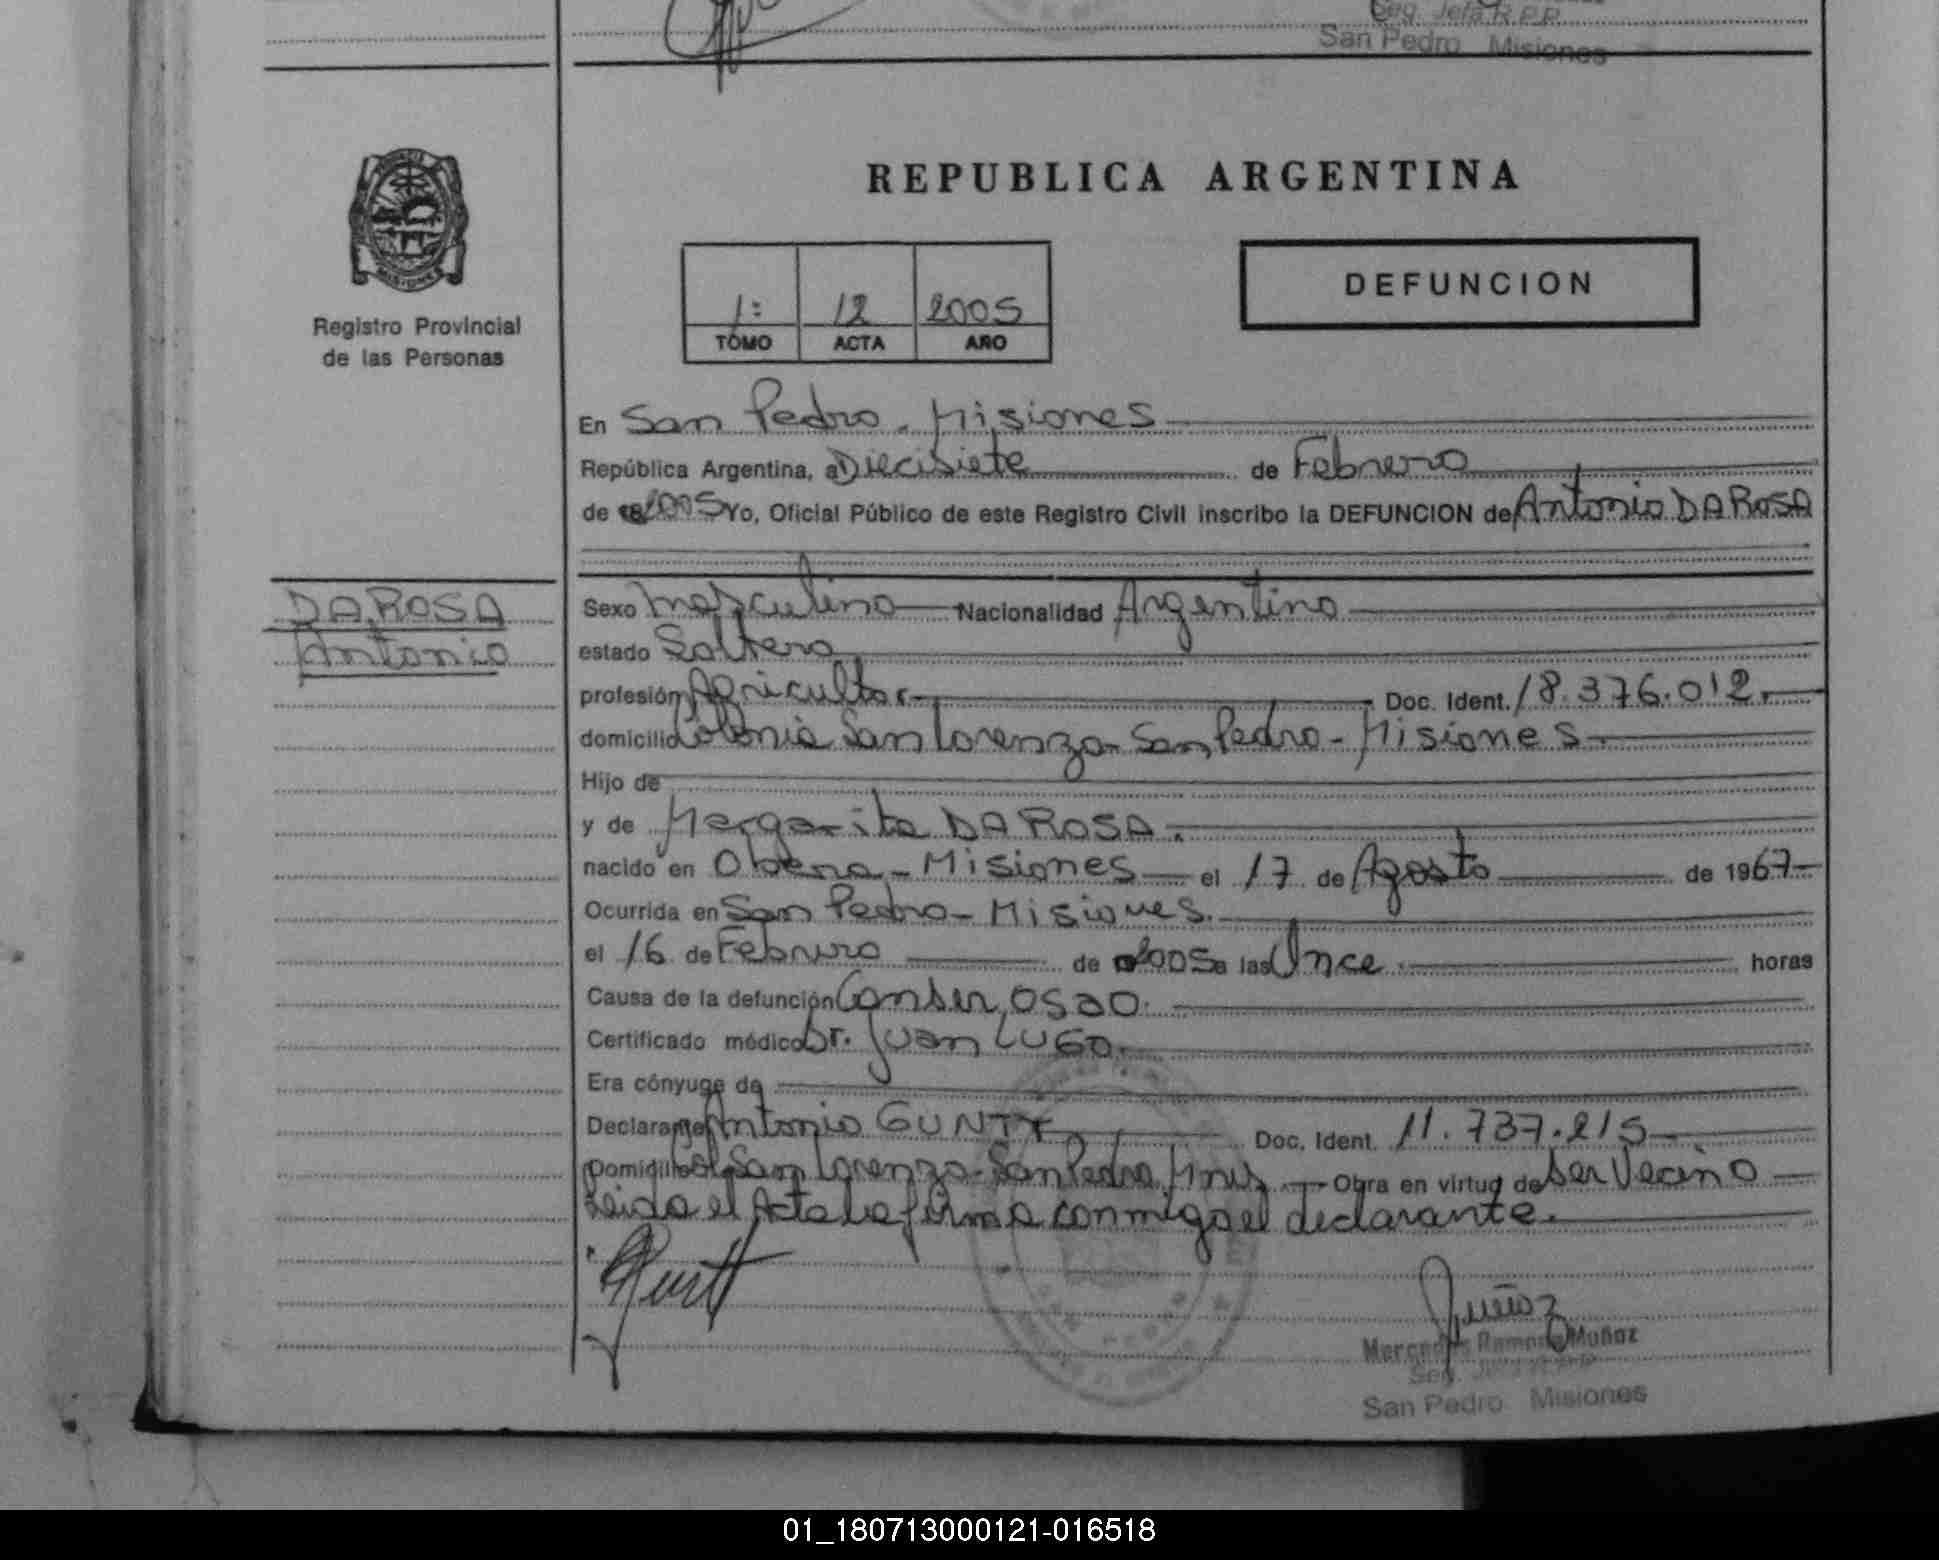 Seg. Jefa R.P.P.
San Pedro Misiones
MISIONES
Registro Provincial
de las Personas
REPUBLICA ARGENTINA
1: 12 2005
TOMO ACTA AÑO
DEFUNCION
En San Pedro. Misiones
República Argentina, a Diecisiete de Febrero
de 2005 Yo, Oficial Público de este Registro Civil inscribo la DEFUNCION de Antonio DA ROSA
DA ROSA
Antonio
Sexo Masculino Nacionalidad Argentino
estado Soltero
profesión Agricultor Doc. Ident. 18.376.012.
domicilio Colonia San Lorenzo San Pedro - Misiones
Hijo de
y de Margarita DA ROSA.
nacido en Obera - Misiones el 17 de Agosto de 1967
Ocurrida en San Pedro - Misiones.
el 16 de Febrero de 2005 a las Once horas
Causa de la defunción Canser oseo.
Certificado médico Dr. Juan LUGO.
Era cónyuge de
Declarante Antonio Doc. Ident. 11.737.215
Domicilio Col San Lorenzo - San Pedro Mnes. Obra en virtud de Ser Vecino
Leida el Acta la firma conmigo el declarante.
Muñoz
Mercedes Ramona Muñoz
Seg. Jefa R.P.P.
San Pedro Misiones
01_180713000121-016518